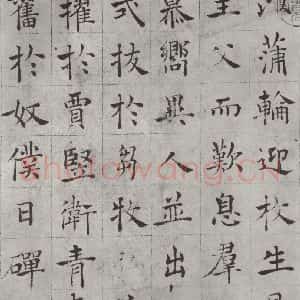 蒲輪迎枚生
主父而歎息羣
慕嚮異人並出
式拔於芻牧
擢於賈竪衛青
奮於奴僕日磾
Photowang.CN